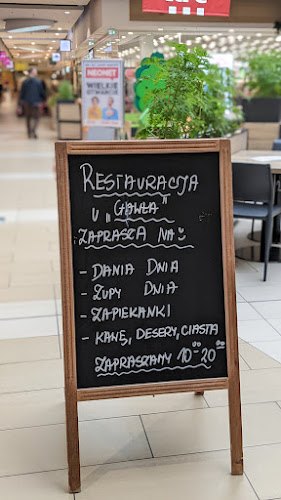 MEDIONET
WIELKIE
OTWARCIE
RESTAURACJA
U „GAWŁA"
ZAPRASZA NA:
- DANIA DNIA
- ZUPY DNIA
- ZAPIEKANKI
- KAWĘ, DESERY, CIASTA
ZAPRASZAMY 10⁰⁰-20⁰⁰